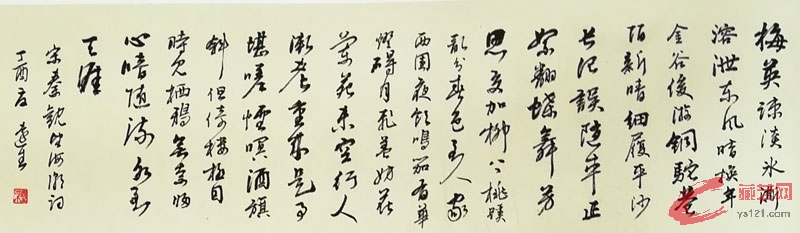 梅英疏淡冰澌
溶泄东风暗换年
金谷俊游铜驼巷
陌新晴细履平沙
长记误随车正
絮翻蝶舞芳
思交加柳下桃蹊
乱分春色到人家
西园夜饮鸣笳有华
灯碍月飞盖妨花
兰苑未空行人
渐老重来是事
堪嗟烟暝酒旗
斜但倚楼极目
时见栖鸦无奈归
心暗随流水到
天涯
宋秦观望海潮词
丁酉夏
ys121.com